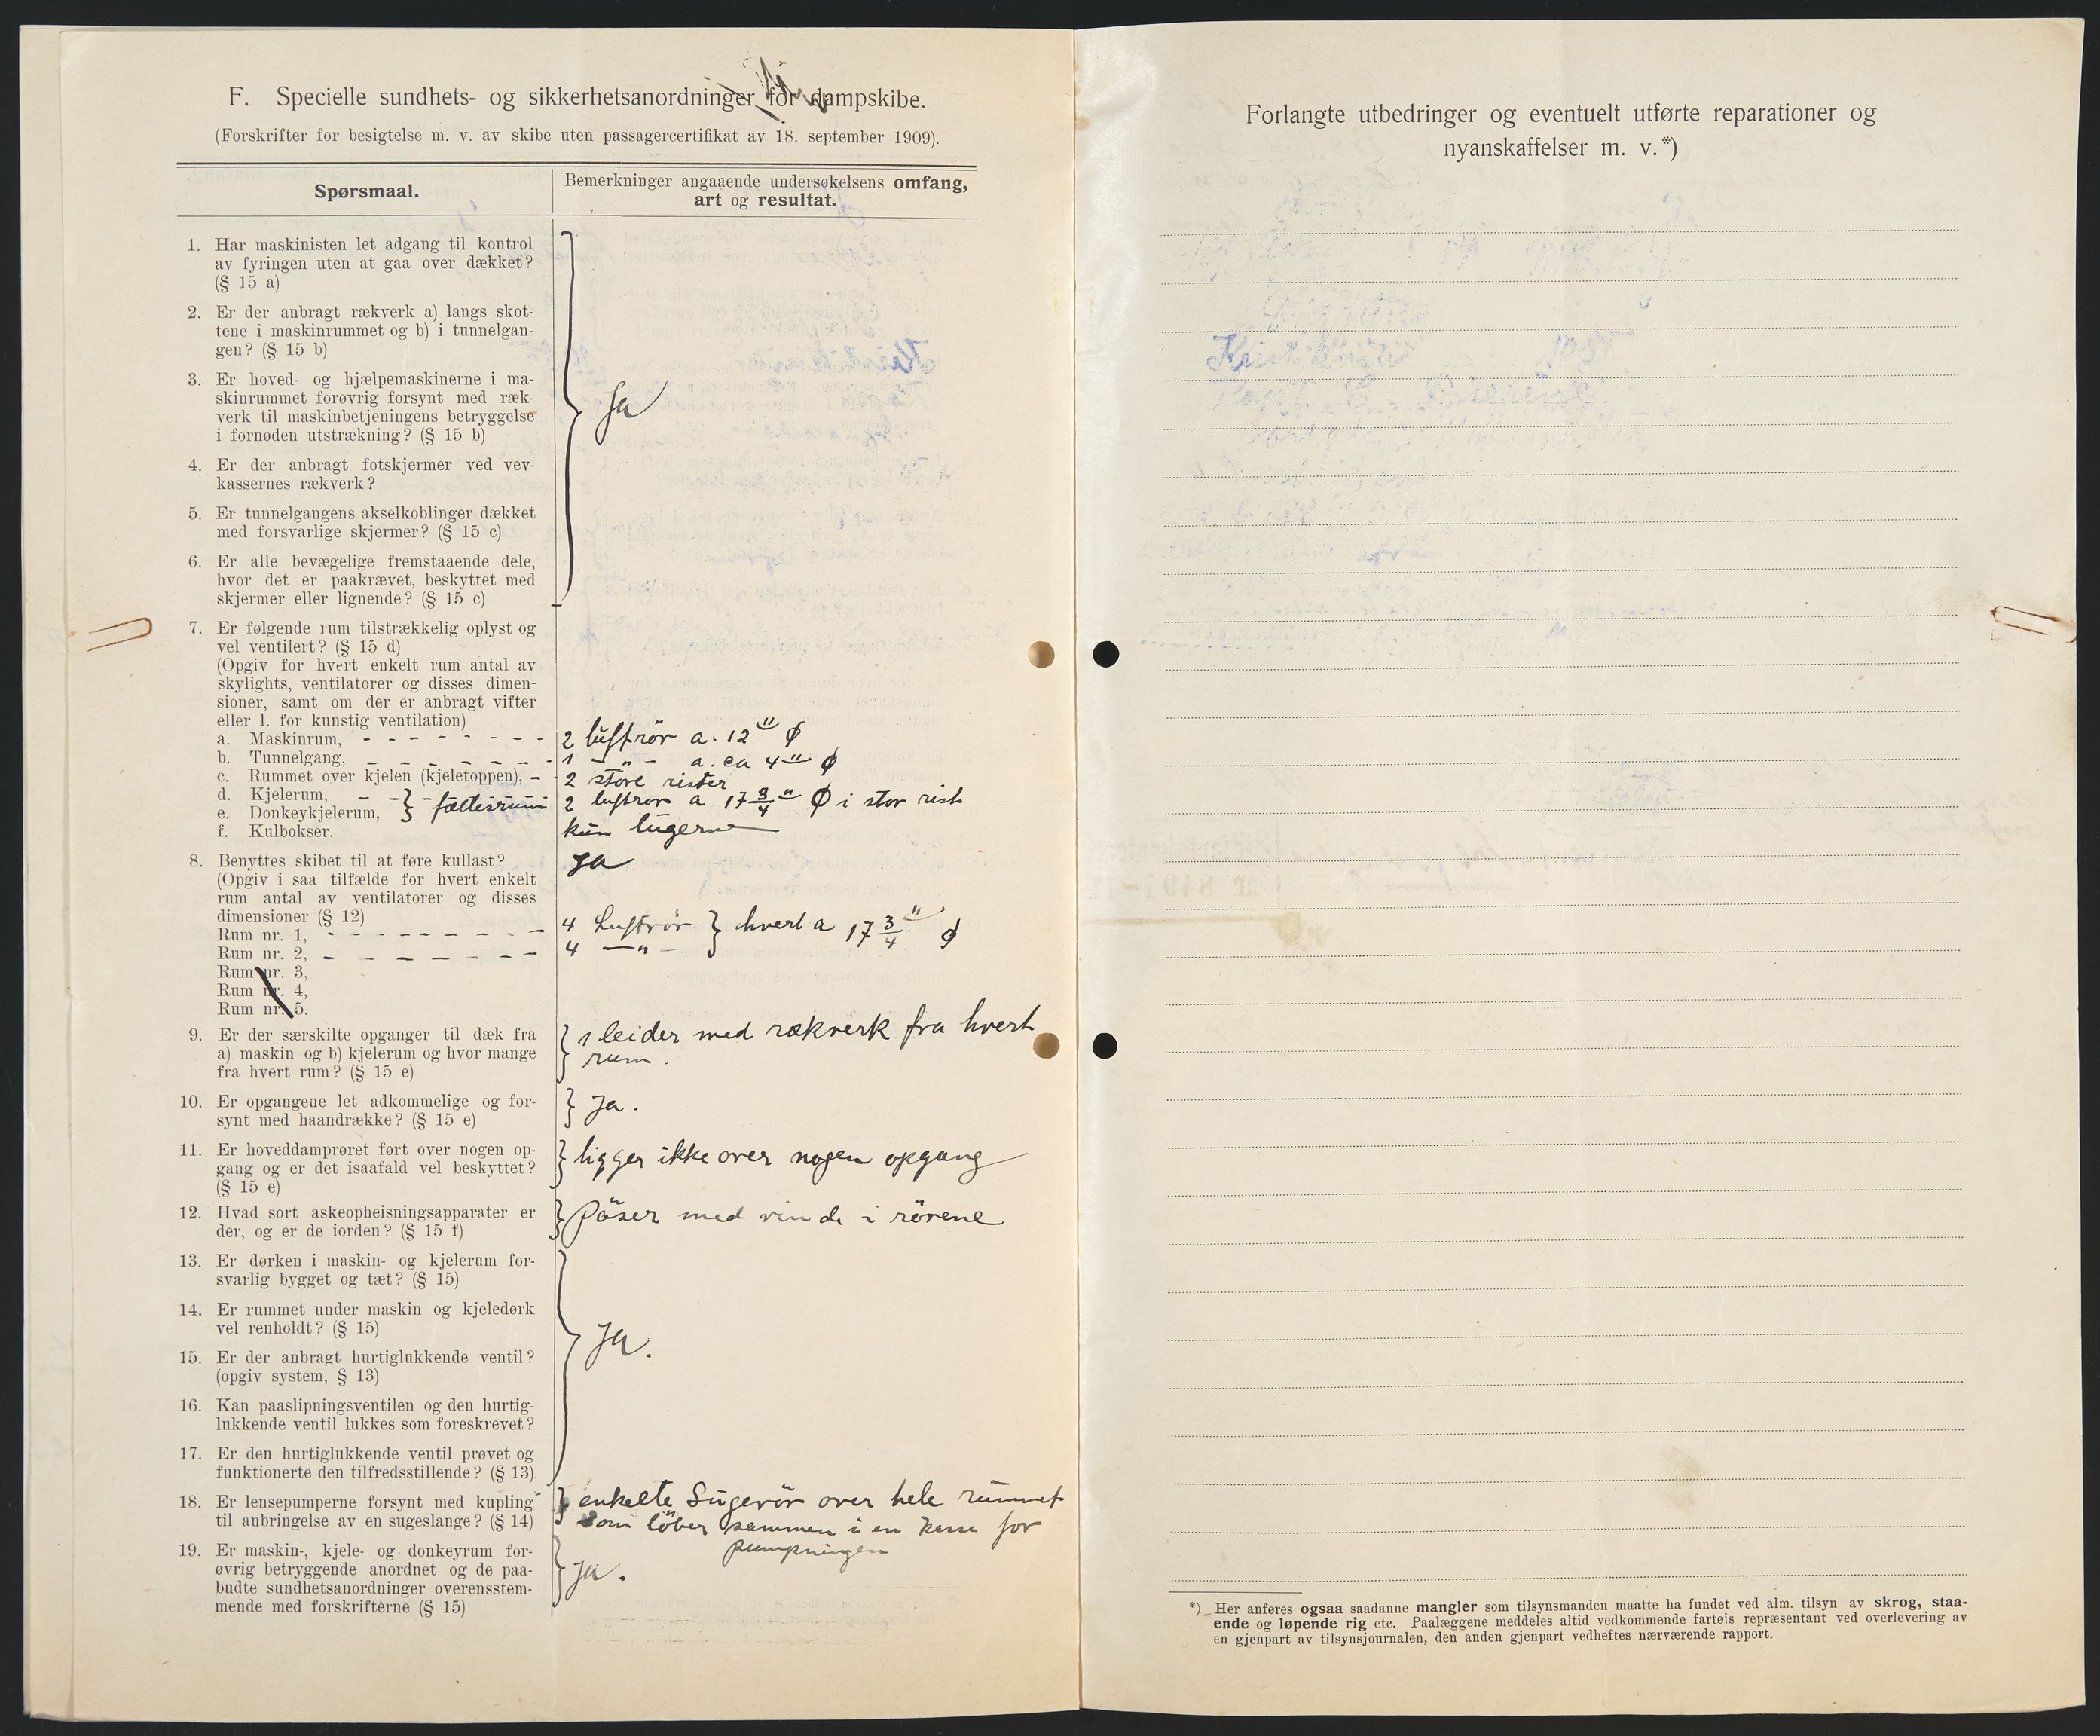 F. Specielle sundhets- og sikkerhetsanordninger for dampskibe.
(Forskrifter for besigtelse m. v. av skibe uten passagercertifikat av 18. september 1909).
Spørsmaal.
Bemerkninger angaaende undersøkelsens omfang,
art og resultat.
1. Har maskinisten let adgang til kontrol
av fyringen uten at gaa over dækket?
(§ 15 a)
2. Er der anbragt rækverk a) langs skot-
tene i maskinrummet og b) i tunnelgan-
gen? (§ 15 b)
3. Er hoved- og hjælpemaskinerne i ma-
skinrummet forøvrig forsynt med ræk-
verk til maskinbetjeningens betryggelse
i fornøden utstrækning? (§ 15 b)
Ja
4. Er der anbragt fotskjermer ved vev-
kassernes rækverk?
5. Er tunnelgangens akselkoblinger dækket
med forsvarlige skjermer? (§ 15 c)
6. Er alle bevægelige fremstaaende dele,
hvor det er paakrævet, beskyttet med
skjermer eller lignende? (§ 15 c)
7. Er følgende rum tilstrækkelig oplyst og
vel ventilert? (§ 15 d)
(Opgiv for hvert enkelt rum antal av
skylights, ventilatorer og disses dimen-
sioner, samt om der er anbragt vifter
eller l. for kunstig ventilation)
a. Maskinrum, - - - - - - - - 2 luftrör a. 12" φ
b. Tunnelgang, - - - - - - - 1 - " - a. ca 4" φ
c. Rummet over kjelen (kjeletoppen), - 2 store rister
d. Kjelerum, - - } fællesrum 2 luftrör a 17 3/4" φ i stor rist
e. Donkeykjelerum,
f. Kulbokser. kun lugerne
8. Benyttes skibet til at føre kullast? Ja
(Opgiv i saa tilfælde for hvert enkelt
rum antal av ventilatorer og disses
dimensioner (§ 12)
Rum nr. 1, - - - - - - - - 4 Luftrör } hvert a 17 3/4" φ
Rum nr. 2, - - - - - - - 4 - " -
Rum nr. 3,
Rum nr. 4,
Rum nr. 5.
9. Er der særskilte opganger til dæk fra
a) maskin og b) kjelerum og hvor mange
fra hvert rum? (§ 15 e)
1 leider med rækverk fra hvert
rum.
10. Er opgangene let adkommelige og for-
synt med haandrække? (§ 15 e)
Ja.
11. Er hoveddamprøret ført over nogen op-
gang og er det isaafald vel beskyttet?
(§ 15 e)
ligger ikke over nogen opgang
12. Hvad sort askeopheisningsapparater er
der, og er de iorden? (§ 15 f)
Pöser med vinde i rörene
13. Er dørken i maskin- og kjelerum for-
svarlig bygget og tæt? (§ 15)
14. Er rummet under maskin og kjeledørk
vel renholdt? (§ 15)
Ja.
15. Er der anbragt hurtiglukkende ventil?
(opgiv system, § 13)
16. Kan paaslipningsventilen og den hurtig-
lukkende ventil lukkes som foreskrevet?
17. Er den hurtiglukkende ventil prøvet og
funktionerte den tilfredsstillende? (§ 13)
18. Er lensepumperne forsynt med kupling
til anbringelse av en sugeslange? (§ 14)
enkelte Sugerör over hele rummet
som löber sammen i en kasse for
pumpningen
19. Er maskin-, kjele- og donkeyrum for-
øvrig betryggende anordnet og de paa-
budte sundhetsanordninger overensstem-
mende med forskrifterne (§ 15)
Ja.
Forlangte utbedringer og eventuelt utførte reparationer og
nyanskaffelser m. v.*)
*) Her anføres ogsaa saadanne mangler som tilsynsmanden maatte ha fundet ved alm. tilsyn av skrog, staa-
ende og løpende rig etc. Paalæggene meddeles altid vedkommende fartøis repræsentant ved overlevering av
en gjenpart av tilsynsjournalen, den anden gjenpart vedheftes nærværende rapport.